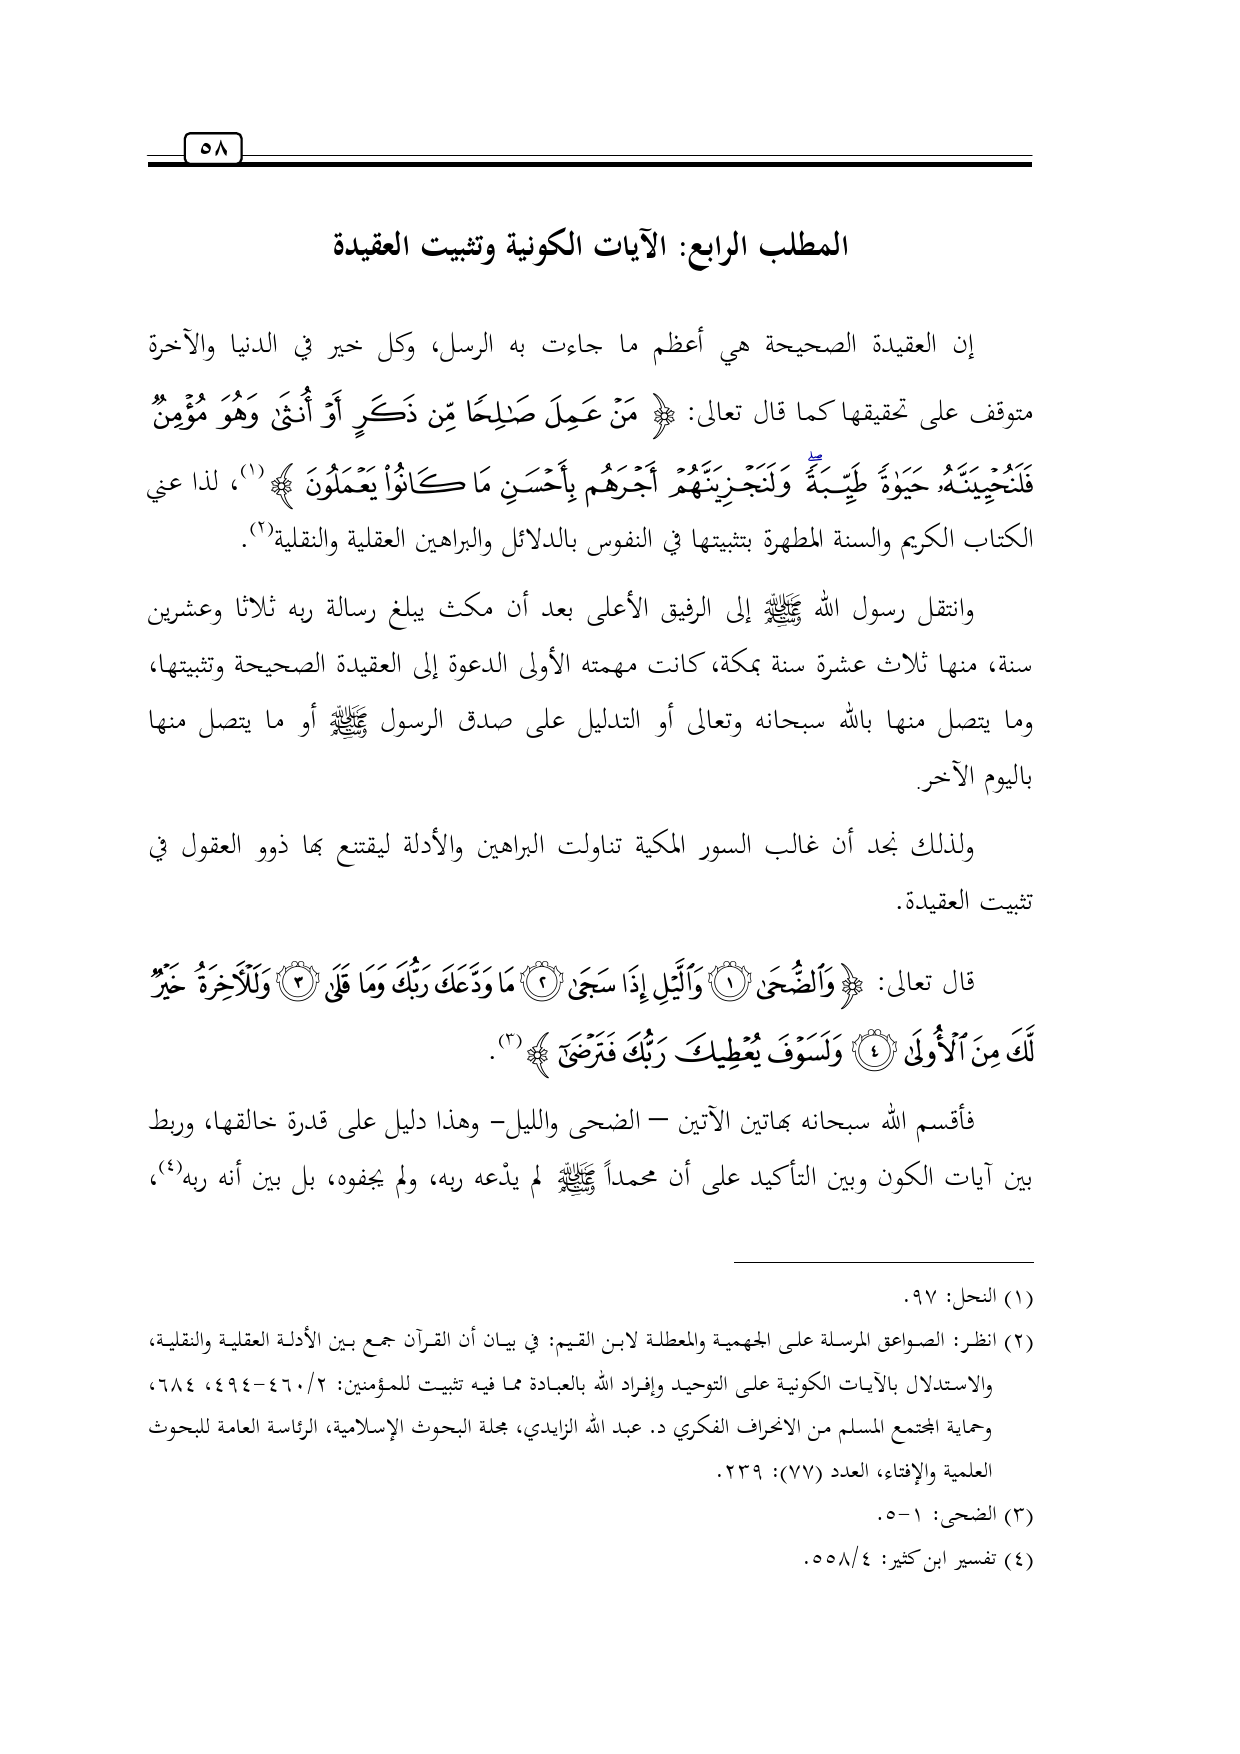 ٥٨
المطلب الرابع: الآيات الكونية وتثبيت العقيدة
إن العقيدة الصحيحة هي أعظم ما جاءت به الرسل، وكل خير في الدنيا والآخرة
متوقف على تحقيقها كما قال تعالى: ﴿ مَنۡ عَمِلَ صَٰلِحٗا مِّن ذَكَرٍ أَوۡ أُنثَىٰ وَهُوَ مُؤۡمِنٞ
فَلَنُحۡيِيَنَّهُۥ حَيَوٰةٗ طَيِّبَةٗۖ وَلَنَجۡزِيَنَّهُمۡ أَجۡرَهُم بِأَحۡسَنِ مَا كَانُواْ يَعۡمَلُونَ ﴾(١)، لذا عني
الكتاب الكريم والسنة المطهرة بتثبيتها في النفوس بالدلائل والبراهين العقلية والنقلية(٢).
وانتقل رسول الله ﷺ إلى الرفيق الأعلى بعد أن مكث يبلغ رسالة ربه ثلاثا وعشرين
سنة، منها ثلاث عشرة سنة بمكة، كانت مهمته الأولى الدعوة إلى العقيدة الصحيحة وتثبيتها،
وما يتصل منها بالله سبحانه وتعالى أو التدليل على صدق الرسول ﷺ أو ما يتصل منها
باليوم الآخر.
ولذلك نجد أن غالب السور المكية تناولت البراهين والأدلة ليقتنع بها ذوو العقول في
تثبيت العقيدة.
قال تعالى: ﴿ وَٱلضُّحَىٰ ١ وَٱلَّيۡلِ إِذَا سَجَىٰ ٢ مَا وَدَّعَكَ رَبُّكَ وَمَا قَلَىٰ ٣ وَلَلۡأٓخِرَةُ خَيۡرٞ
لَّكَ مِنَ ٱلۡأُولَىٰ ٤ وَلَسَوۡفَ يُعۡطِيكَ رَبُّكَ فَتَرۡضَىٰٓ ﴾(٣).
فأقسم الله سبحانه بهاتين الآتين – الضحى والليل– وهذا دليل على قدرة خالقها، وربط
بين آيات الكون وبين التأكيد على أن محمداً ﷺ لم يدْعه ربه، ولم يجفوه، بل بين أنه ربه(٤)،
(١) النحل: ٩٧.
(٢) انظر: الصواعق المرسلة على الجهمية والمعطلة لابن القيم: في بيان أن القرآن جمع بين الأدلة العقلية والنقلية،
والاستدلال بالآيات الكونية على التوحيد وإفراد الله بالعبادة مما فيه تثبيت للمؤمنين: ٤٦٠/٢-٤٩٤، ٦٨٤،
وحماية المجتمع المسلم من الانحراف الفكري د. عبد الله الزايدي، مجلة البحوث الإسلامية، الرئاسة العامة للبحوث
العلمية والإفتاء، العدد (٧٧): ٢٣٩.
(٣) الضحى: ١-٥.
(٤) تفسير ابن كثير: ٥٥٨/٤.